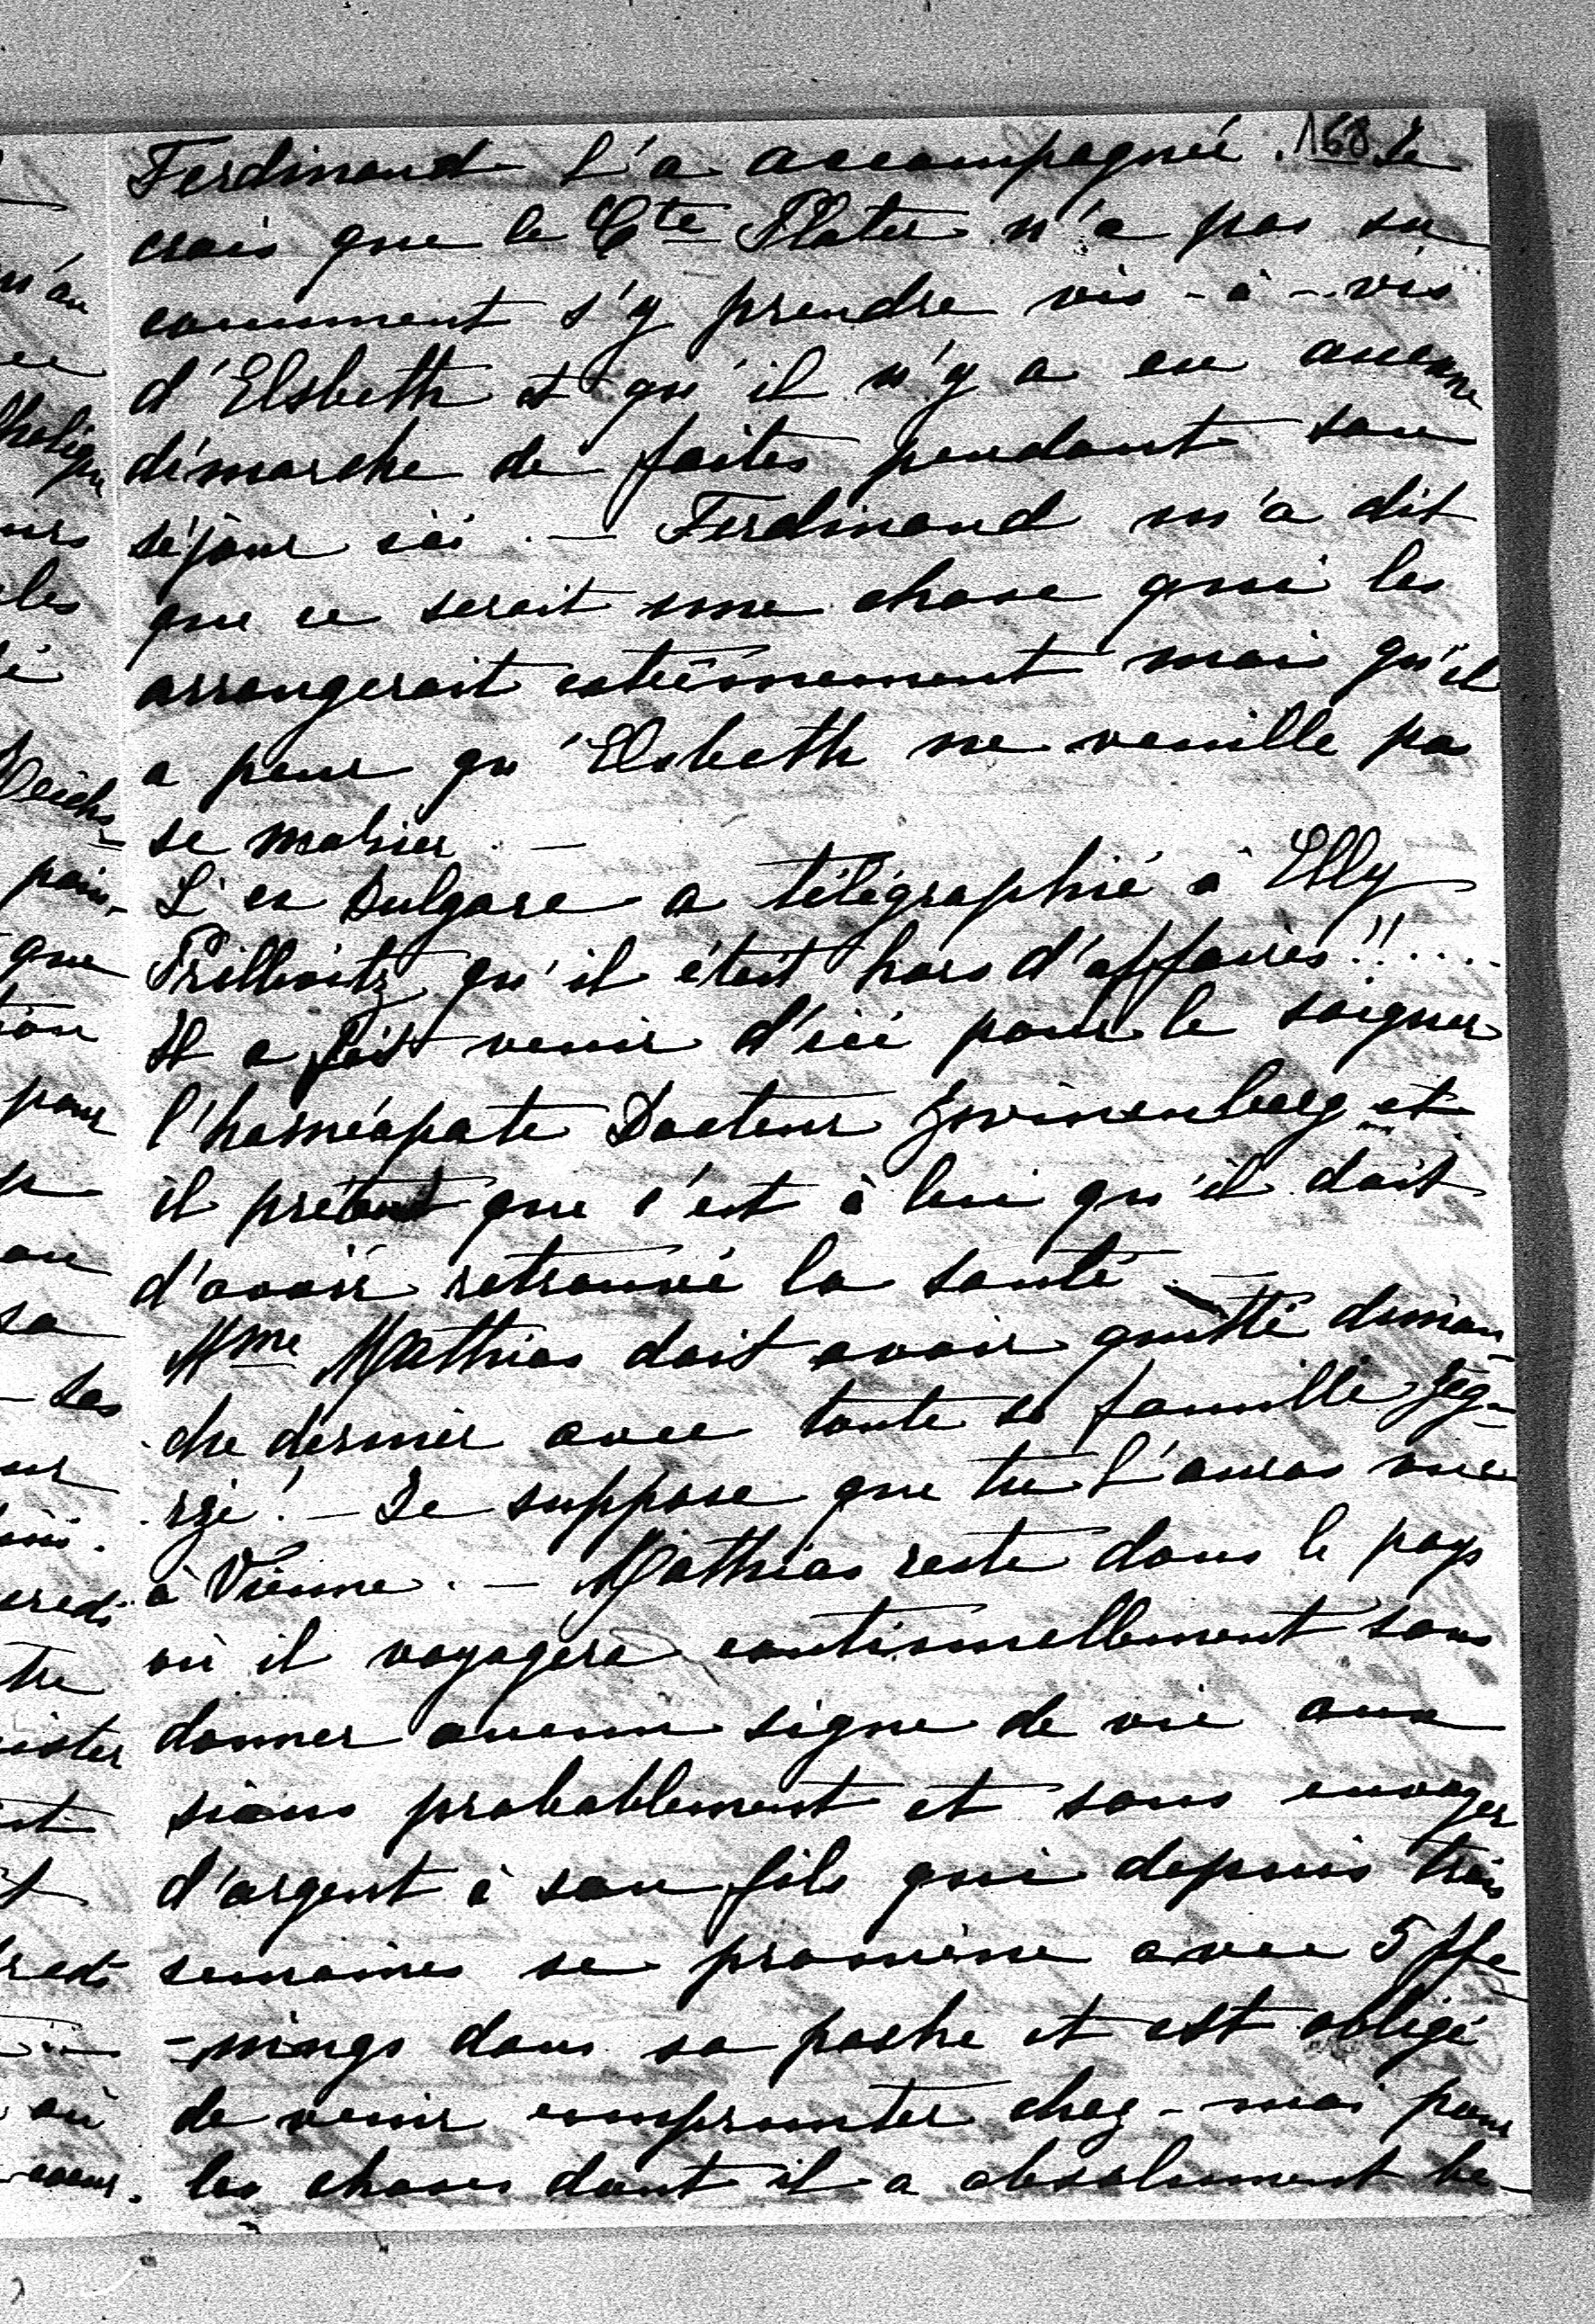 168
Ferdinand l'a accompagnée. Je
crois que le Cte Plater n'a pas su
comment s'y prendre vis-à-vis
d'Elsbeth et qu'il n'y a eu aucune
démarche de faites pendant son
séjour ici. — Ferdinand m'a dit
que ce serait une chose qui les
arrangerait extrêmement mais qu'il
a peur qu'Elsbeth ne veuille pas
se marier. —
L'ex Bulgare a télégraphié à Elly
Prillwitz qu'il était hors d'affaires!!.....
Il a fait venir d'ici pour le soigner
l'homéopate Docteur et
il prétend que c'est à lui qu'il doit
d'avoir retrouvé la santé. —
Mme Mathias doit avoir quitté diman-
che dernier avec toute sa famille Jég-
rzé! — Je suppose que tu l'auras vue
à Vienne. — Mathias reste dans le pays
où il voyagera continuellement sans
donner aucun signe de vie aux
siens probablement et sans envoyer
d'argent à son fils qui depuis trois
semaines se promène avec 5 pfe-
-nings dans sa poche et est obligé
de venir emprunter chez-moi pour
les choses dont il a absolument be-